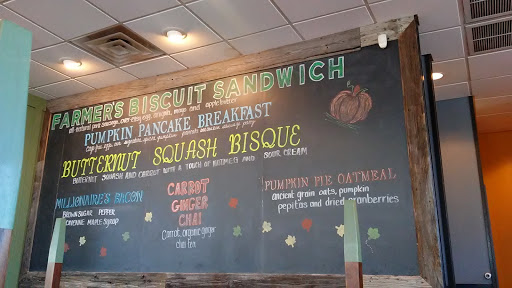 FARMER'S BISCUIT SANDWICH
all-natural pork sausage, over easy egg, arugula, mayo and apple butter
PUMPKIN PANCAKE BREAKFAST
BUTTERNUT SQUASH BISQUE
BUTTERNUT SQUASH AND CARROT WITH A TOUCH OF NUTMEG AND SOUR CREAM
MILLIONAIRE'S BACON
BROWN SUGAR PEPPER
CAYENNE MAPLE SYRUP
CARROT
GINGER
CHAI
Carrot, organic ginger
chai tea
PUMPKIN PIE OATMEAL
ancient grain oats, pumpkin
pepitas and dried cranberries